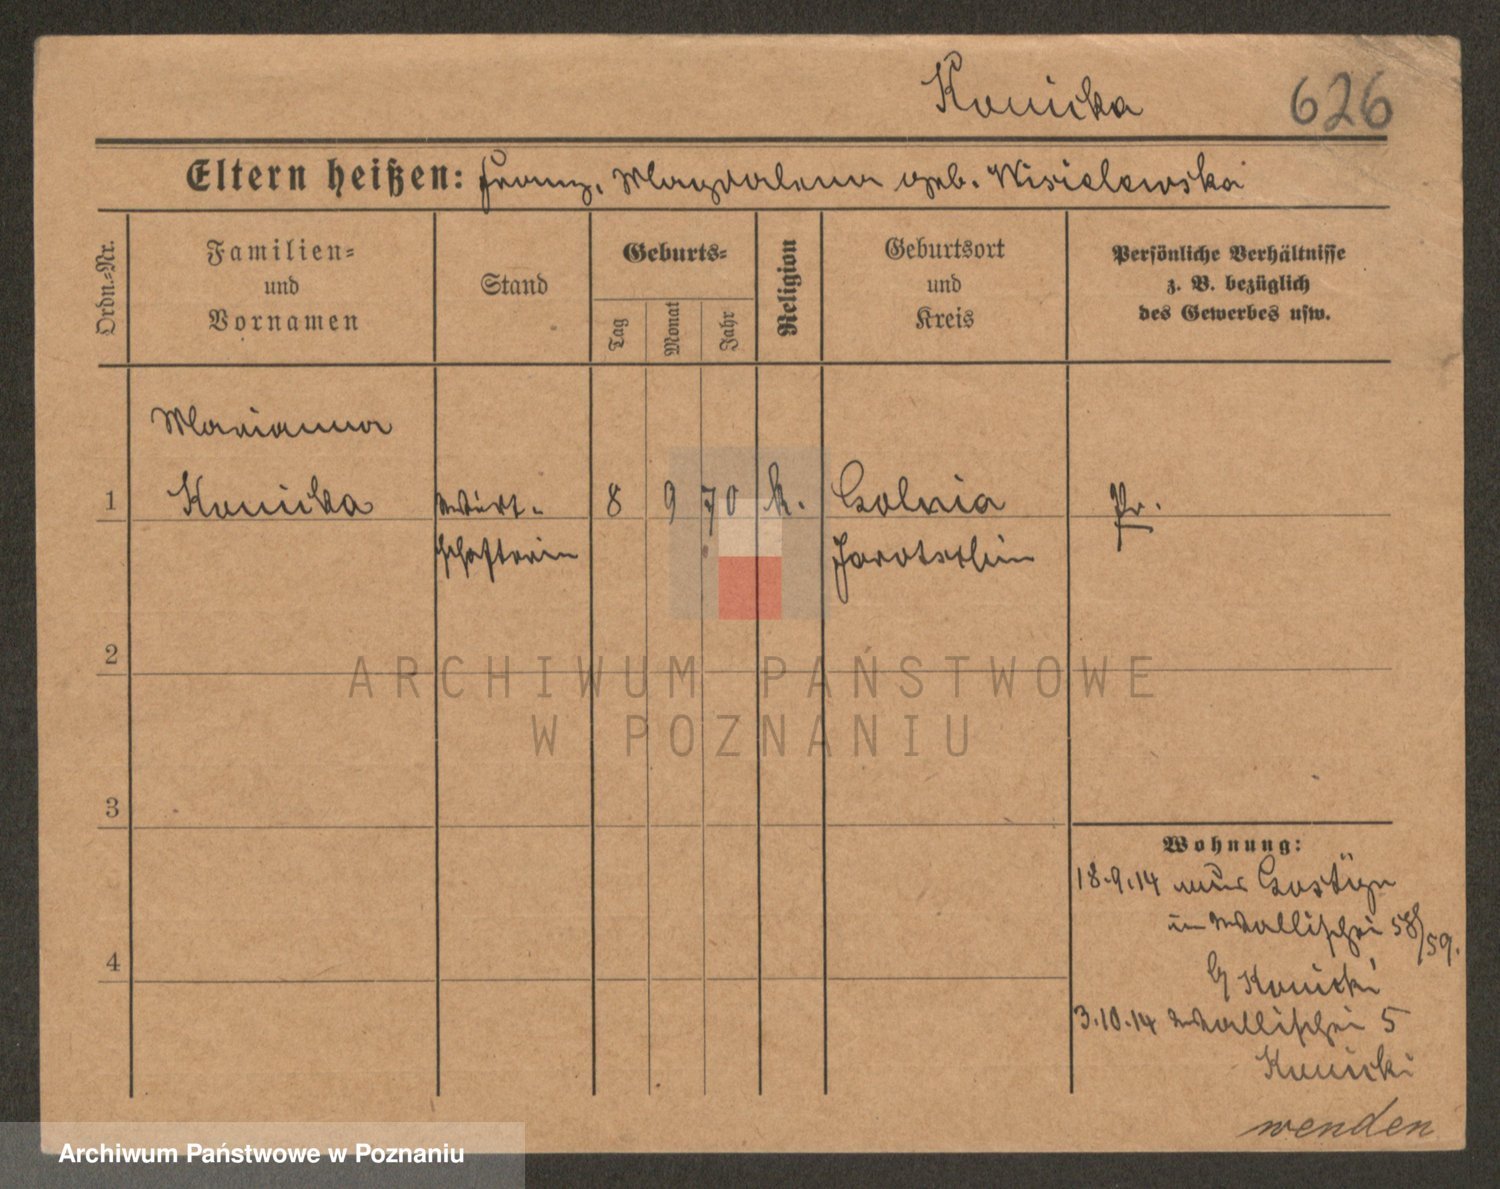 Konicka
626
Eltern heißen: Franz, Magdalena geb. Wisielewska
Ordn.=Nr.
Familien=
und
Vornamen
Stand
Geburts=
Tag
Monat
Jahr
Religion
Geburtsort
und
Kreis
Persönliche Verhältnisse
z. B. bezüglich
des Gewerbes usw.
Marianna
1 Konicka Wirt- 8 9 70 k. Golnia Pr.
schafterin Jarotschin
2
3
4
Wohnung:
18.9.14 aus Gostyn
in Wallischei 58/59.
b/ Konicki
3.10.14 Wallischei 5
Konicki
wenden
ARCHIWUM PAŃSTWOWE
W POZNANIU
Archiwum Państwowe w Poznaniu